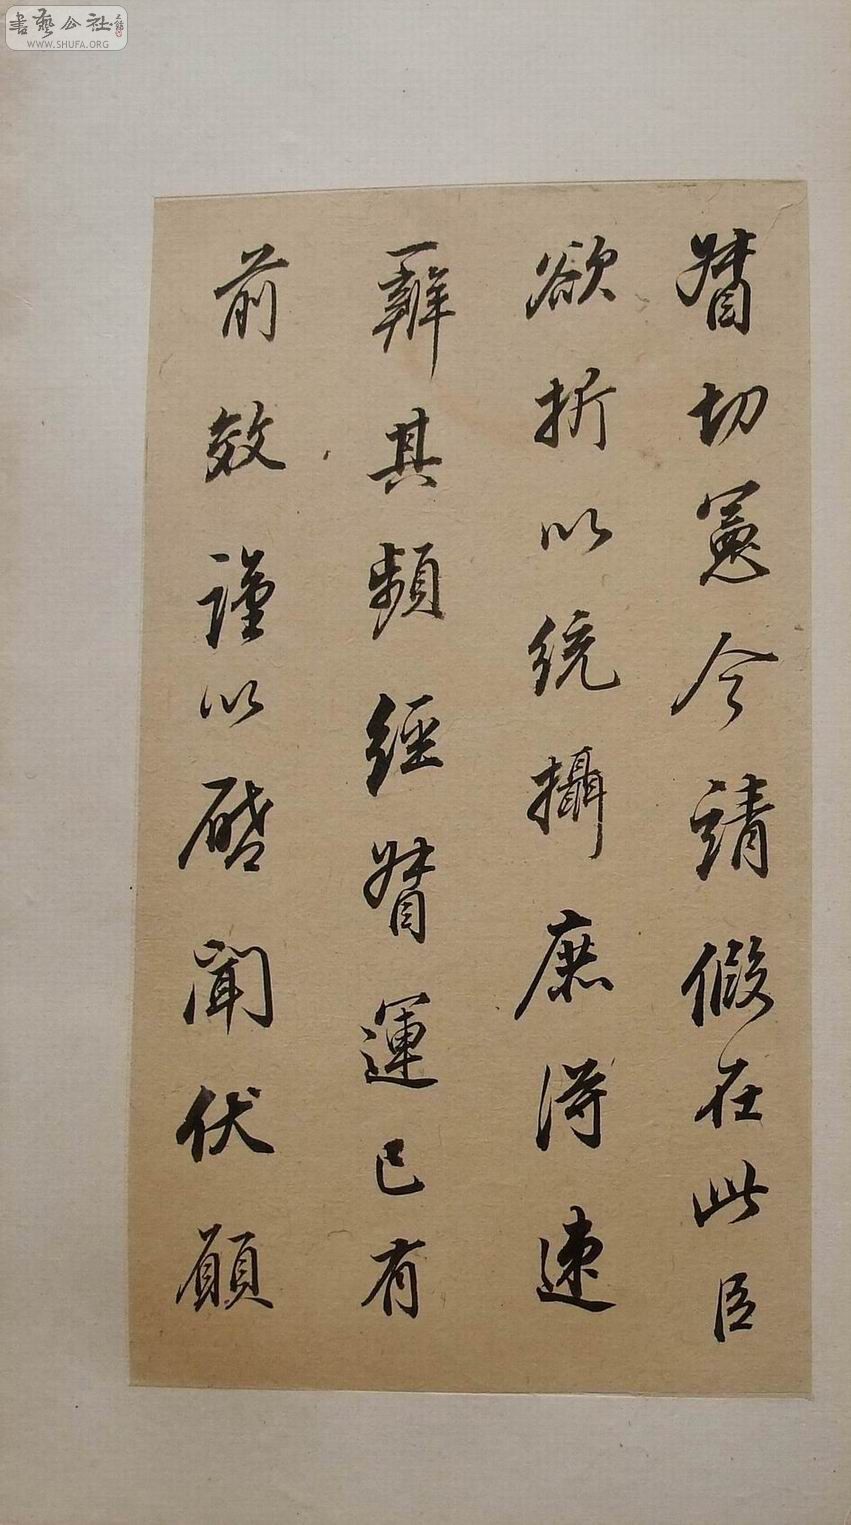 書藝公社
WWW.SHUFA.ORG
督切憲今請假在此臣
欲折以統攝庶得速
辦其頻經督運已有
前效謹以啟聞伏願